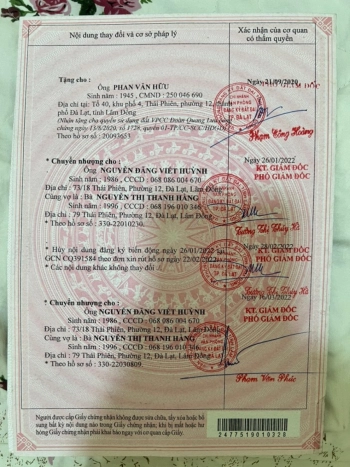 Nội dung thay đổi và cơ sở pháp lý
Xác nhận của cơ quan
có thẩm quyền
Tặng cho :
Ông PHAN VĂN HỮU
Sinh năm : 1945 , CMND : 250 046 690
Địa chỉ tại: Tổ 40, khu phố 4, Thái Phiên, phường 12,
phố Đà Lạt, tỉnh Lâm Đồng
(Nhận tặng cho quyền sử dụng đất VPCC Đoàn Quang
chứng ngày 13/8/2020, số 1728, quyển 01-TP/CC-SCC/HĐGD)
Theo hồ sơ số : 20093651
Ngày 21/09/2020
GIÁM ĐỐC
Phạm Công Hoàng
* Chuyển nhượng cho :
Ông NGUYỄN ĐĂNG VIỆT HUỲNH
Sinh năm : 1986 , CCCD : 068 086 004 670
Địa chỉ : 73/18 Thái Phiên, Phường 12, Đà Lạt, Lâm Đồng.
Cùng vợ là : Bà NGUYỄN THỊ THANH HẰNG
Sinh năm : 1996 , CCCD : 068 196 010 346
Địa chỉ : 79 Thái Phiên, Phường 12, Đà Lạt, Lâm Đồng.
* Theo hồ sơ số : 330-22010230.
Ngày 26/01/2022
KT. GIÁM ĐỐC
PHÓ GIÁM ĐỐC
Tưởng Thị Thúy Hà
* Hủy nội dung đăng ký biến động ngày 26/01/2022 tại
GCN CQ391584 theo đơn xin rút hồ sơ ngày 22/02/2022
* Các nội dung khác không thay đổi
KT. GIÁM ĐỐC
PHÓ GIÁM ĐỐC
Tưởng Thị Thúy Hà
* Chuyển nhượng cho :
Ông NGUYỄN ĐĂNG VIỆT HUỲNH
Sinh năm : 1986 , CCCD : 068 086 004 670
Địa chỉ : 73/18 Thái Phiên, Phường 12, Đà Lạt, Lâm Đồng.
Cùng vợ là : Bà NGUYỄN THỊ THANH HẰNG
Sinh năm : 1996 , CCCD : 068 196 010 346
Địa chỉ : 79 Thái Phiên, Phường 12, Đà Lạt, Lâm Đồng.
* Theo hồ sơ số : 330-22030809
KT. GIÁM ĐỐC
PHÓ GIÁM ĐỐC
Phạm Văn Phúc
Người được cấp Giấy chứng nhận không được sửa chữa, tẩy xóa hoặc bổ
sung bất kỳ nội dung nào trong Giấy chứng nhận; khi bị mất hoặc hư
hỏng Giấy chứng nhận phải khai báo ngay với cơ quan cấp Giấy.
2477519019328